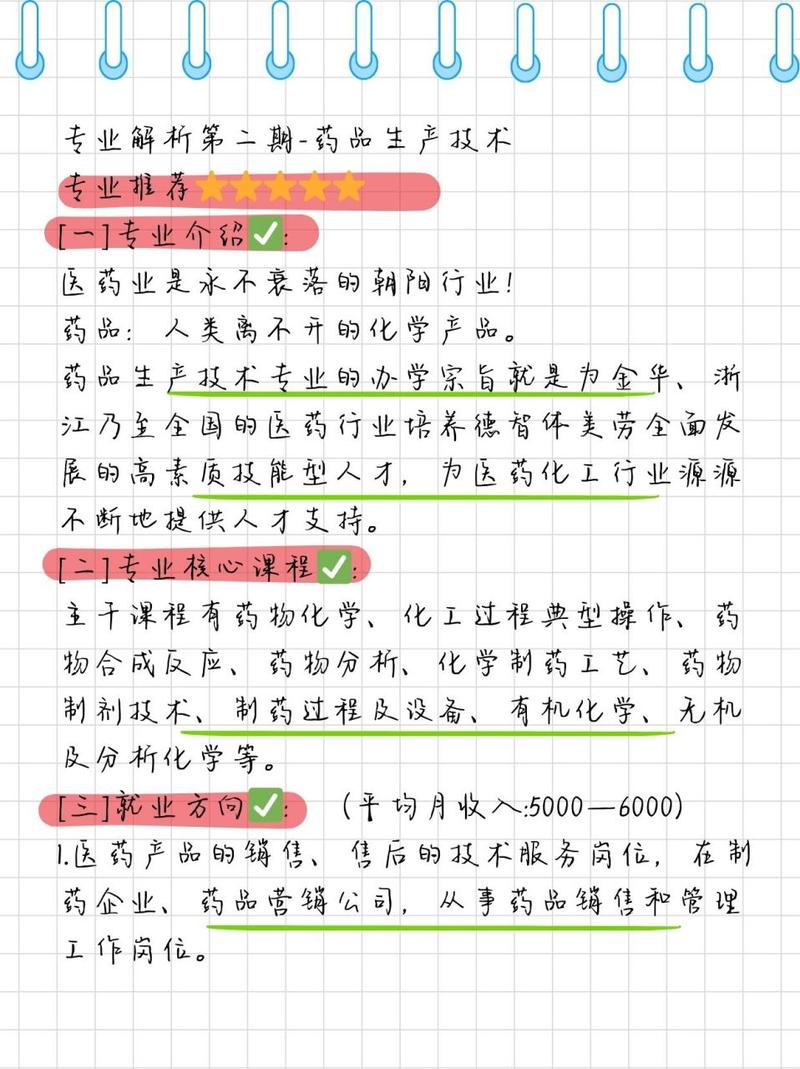 专业解析第二期-药品生产技术
专业推荐⭐⭐⭐⭐⭐
[一]专业介绍✅:
医药业是永不衰落的朝阳行业!
药品:人类离不开的化学产品。
药品生产技术专业的办学宗旨就是为金华、浙
江乃至全国的医药行业培养德智体美劳全面发
展的高素质技能型人才,为医药化工行业源源
不断地提供人才支持。
[二]专业核心课程✅:
主干课程有药物化学、化工过程典型操作、药
物合成反应、药物分析、化学制药工艺、药物
制剂技术、制药过程及设备、有机化学、无机
及分析化学等。
[三]就业方向✅: (平均月收入:5000—6000)
1.医药产品的销售、售后的技术服务岗位,在制
药企业、药品营销公司,从事药品销售和管理
工作岗位。